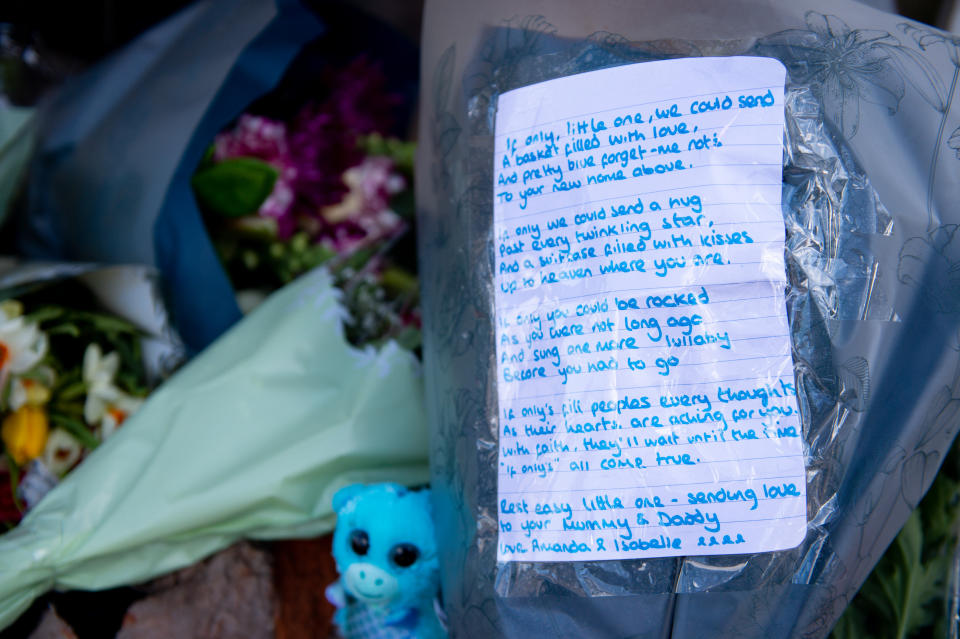 If only, little one, we could send
A basket filled with love,
And pretty blue forget-me nots
To your new home above.
If only we could send a hug
Past every twinkling star,
And a suitcase filled with kisses
Up to heaven where you are.
If only you could be rocked
As you were not long ago
And sung one more lullaby
Before you had to go
If only's fill peoples every thoughts
As their hearts, are aching for you.
With faith, they'll wait until the
"if only's" all come true.
Rest easy little one - sending love
to your Mummy & Daddy
Love Amanda & Isobelle